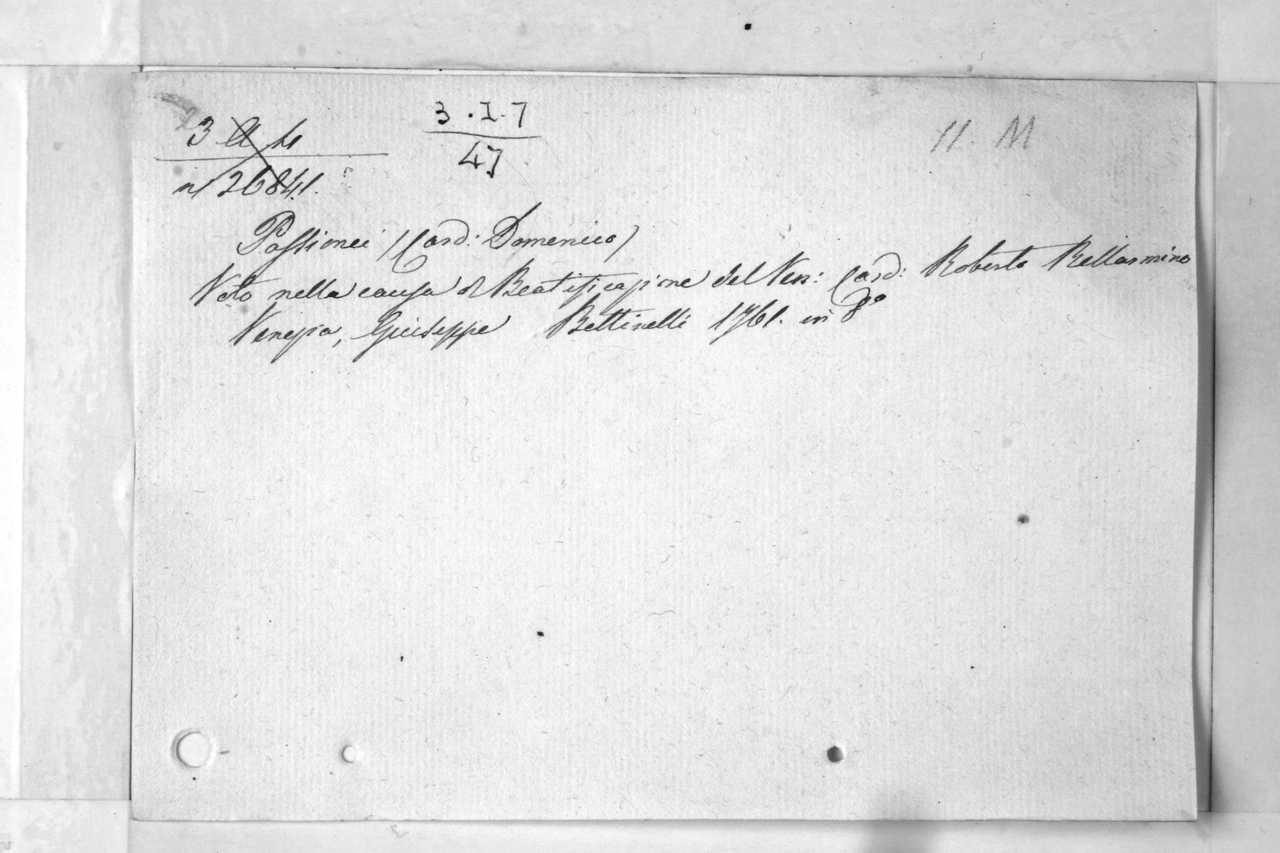 3 . I . 7
47
11. M
n 26841.
Passionei (Card: Domenico)
Voto nella causa di Beatificazione del Ven: Card: Roberto Bellarmino
Venezia, Giuseppe Bettinelli 1761. in 8º